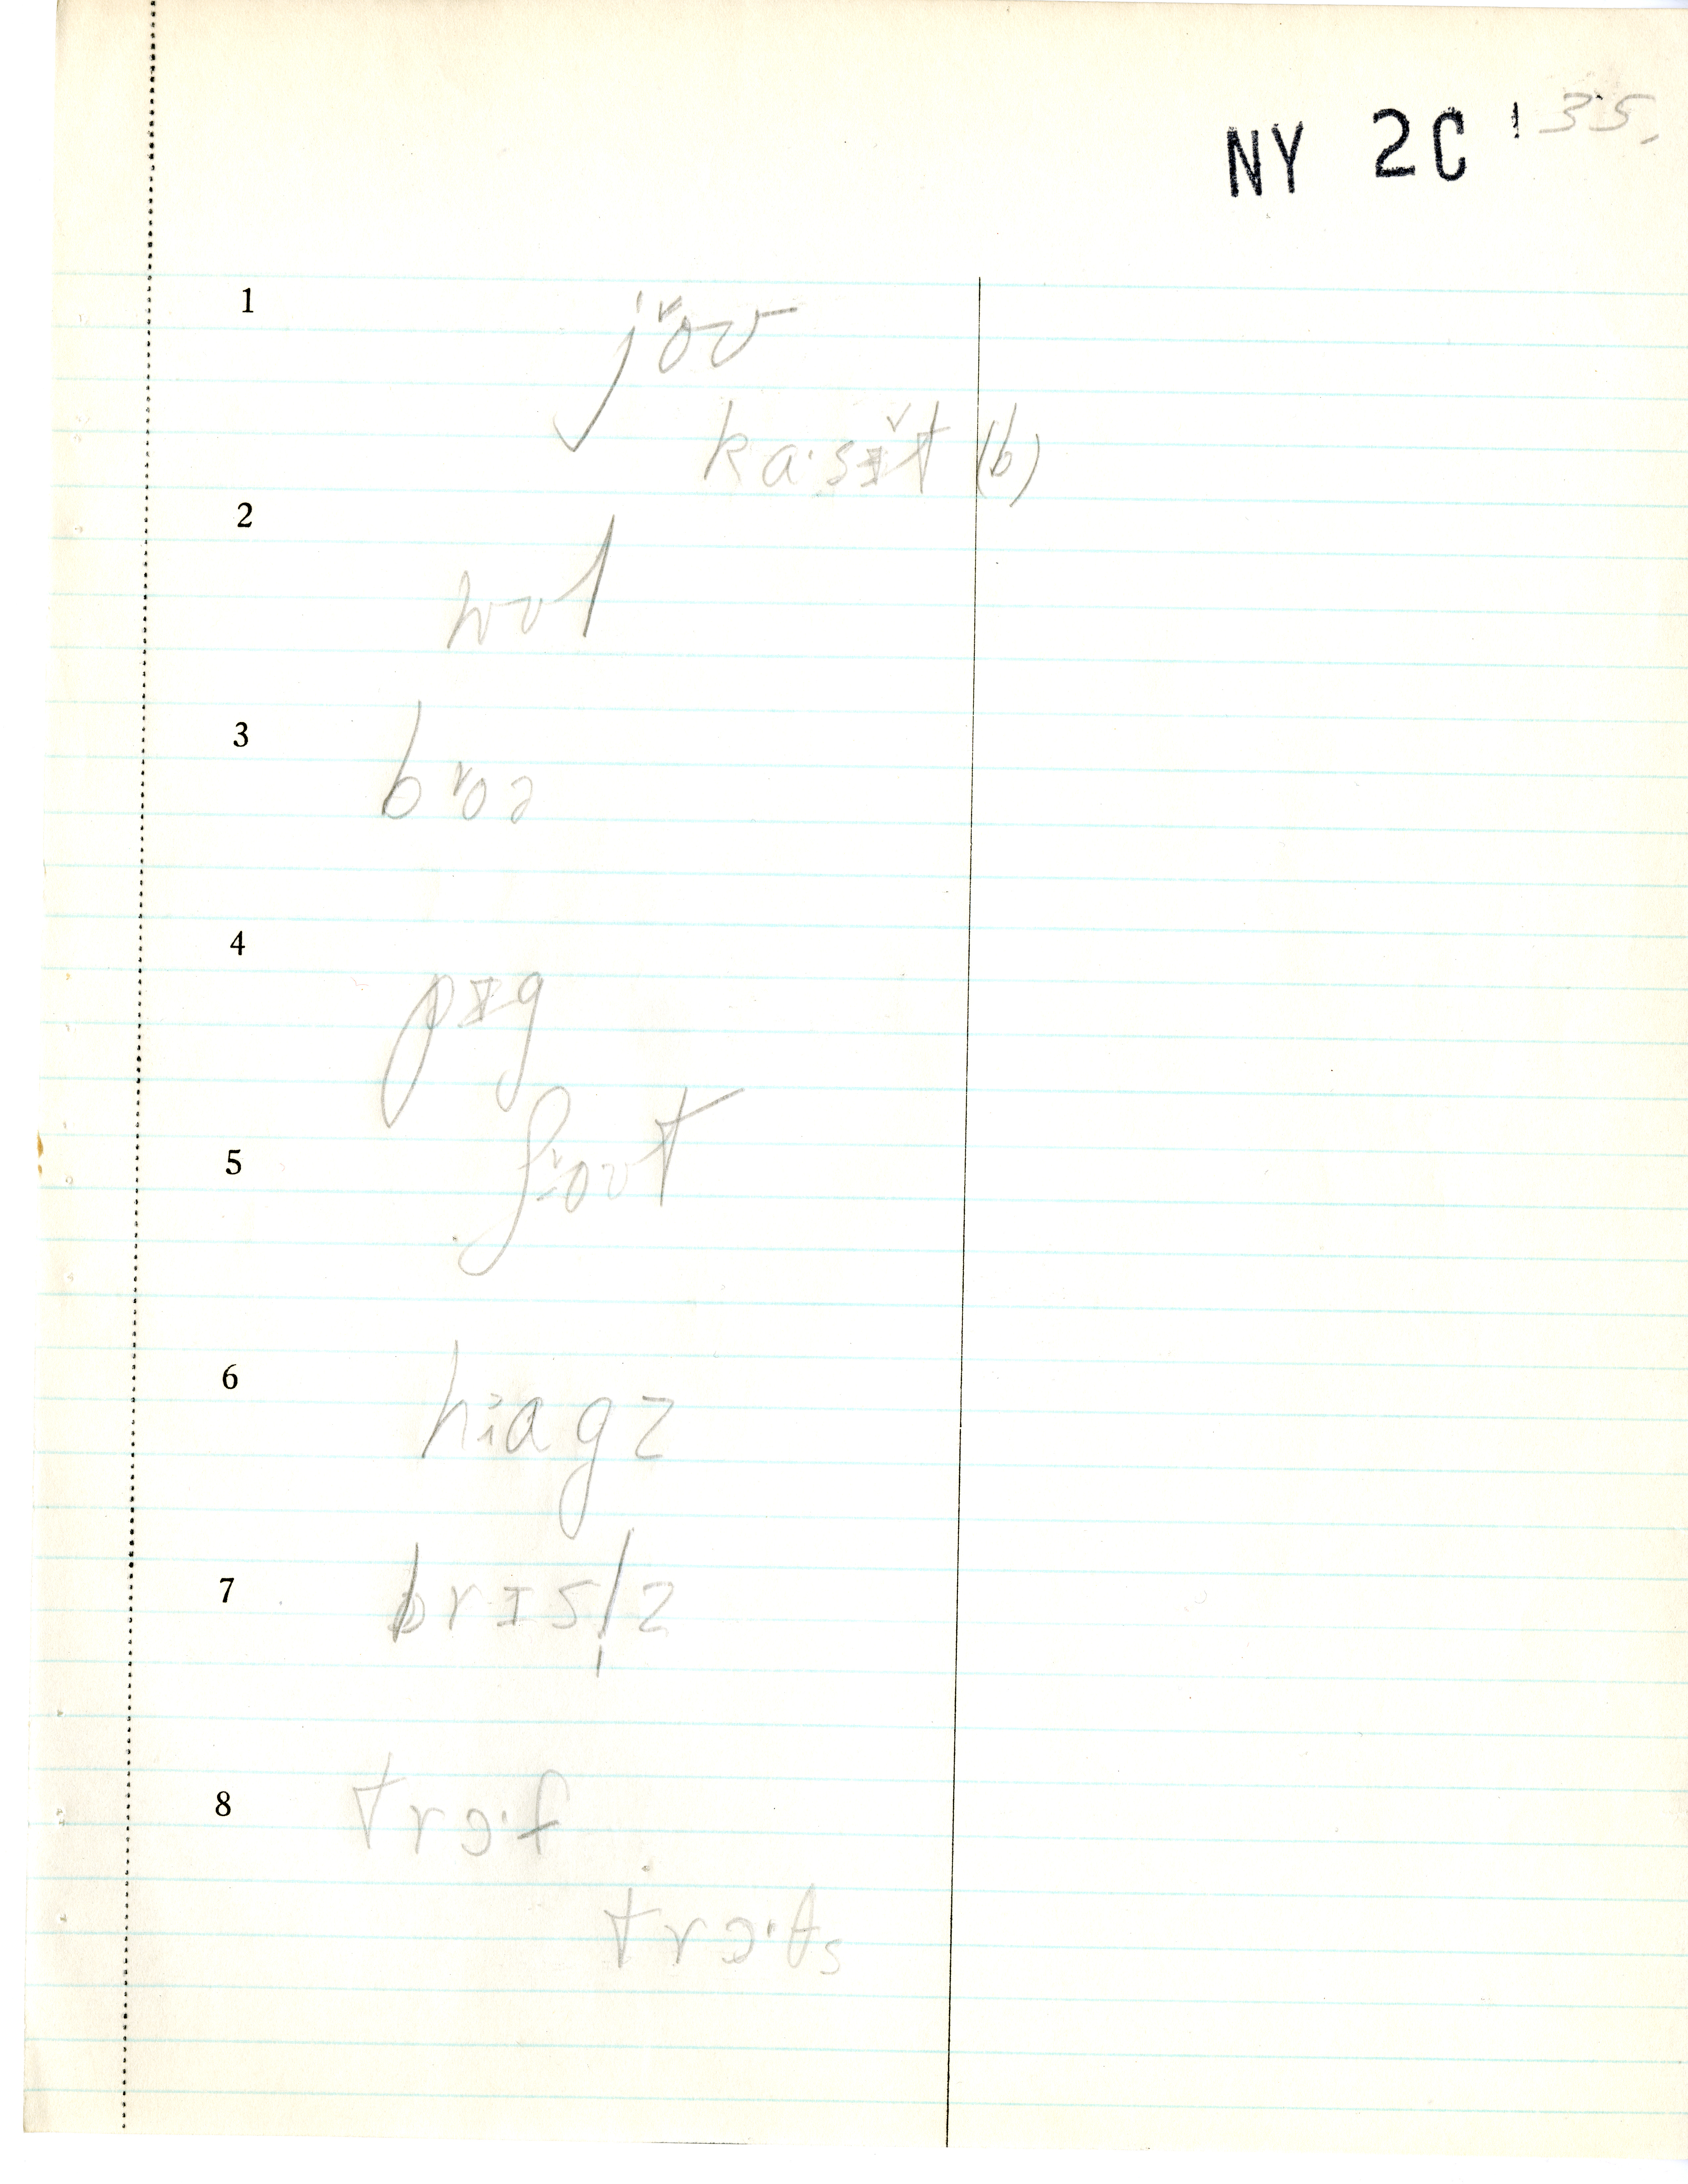 NY 2C ' 35.
1
jo˅ʊ
ka·sɪ̌t (b)
2
wʊl
3
bo˅ə
4
pɪg
5
ʃo˅ʊt
6
hɑgz
7
brɪsl̩z
8
trɔ·f
trɔ·θs